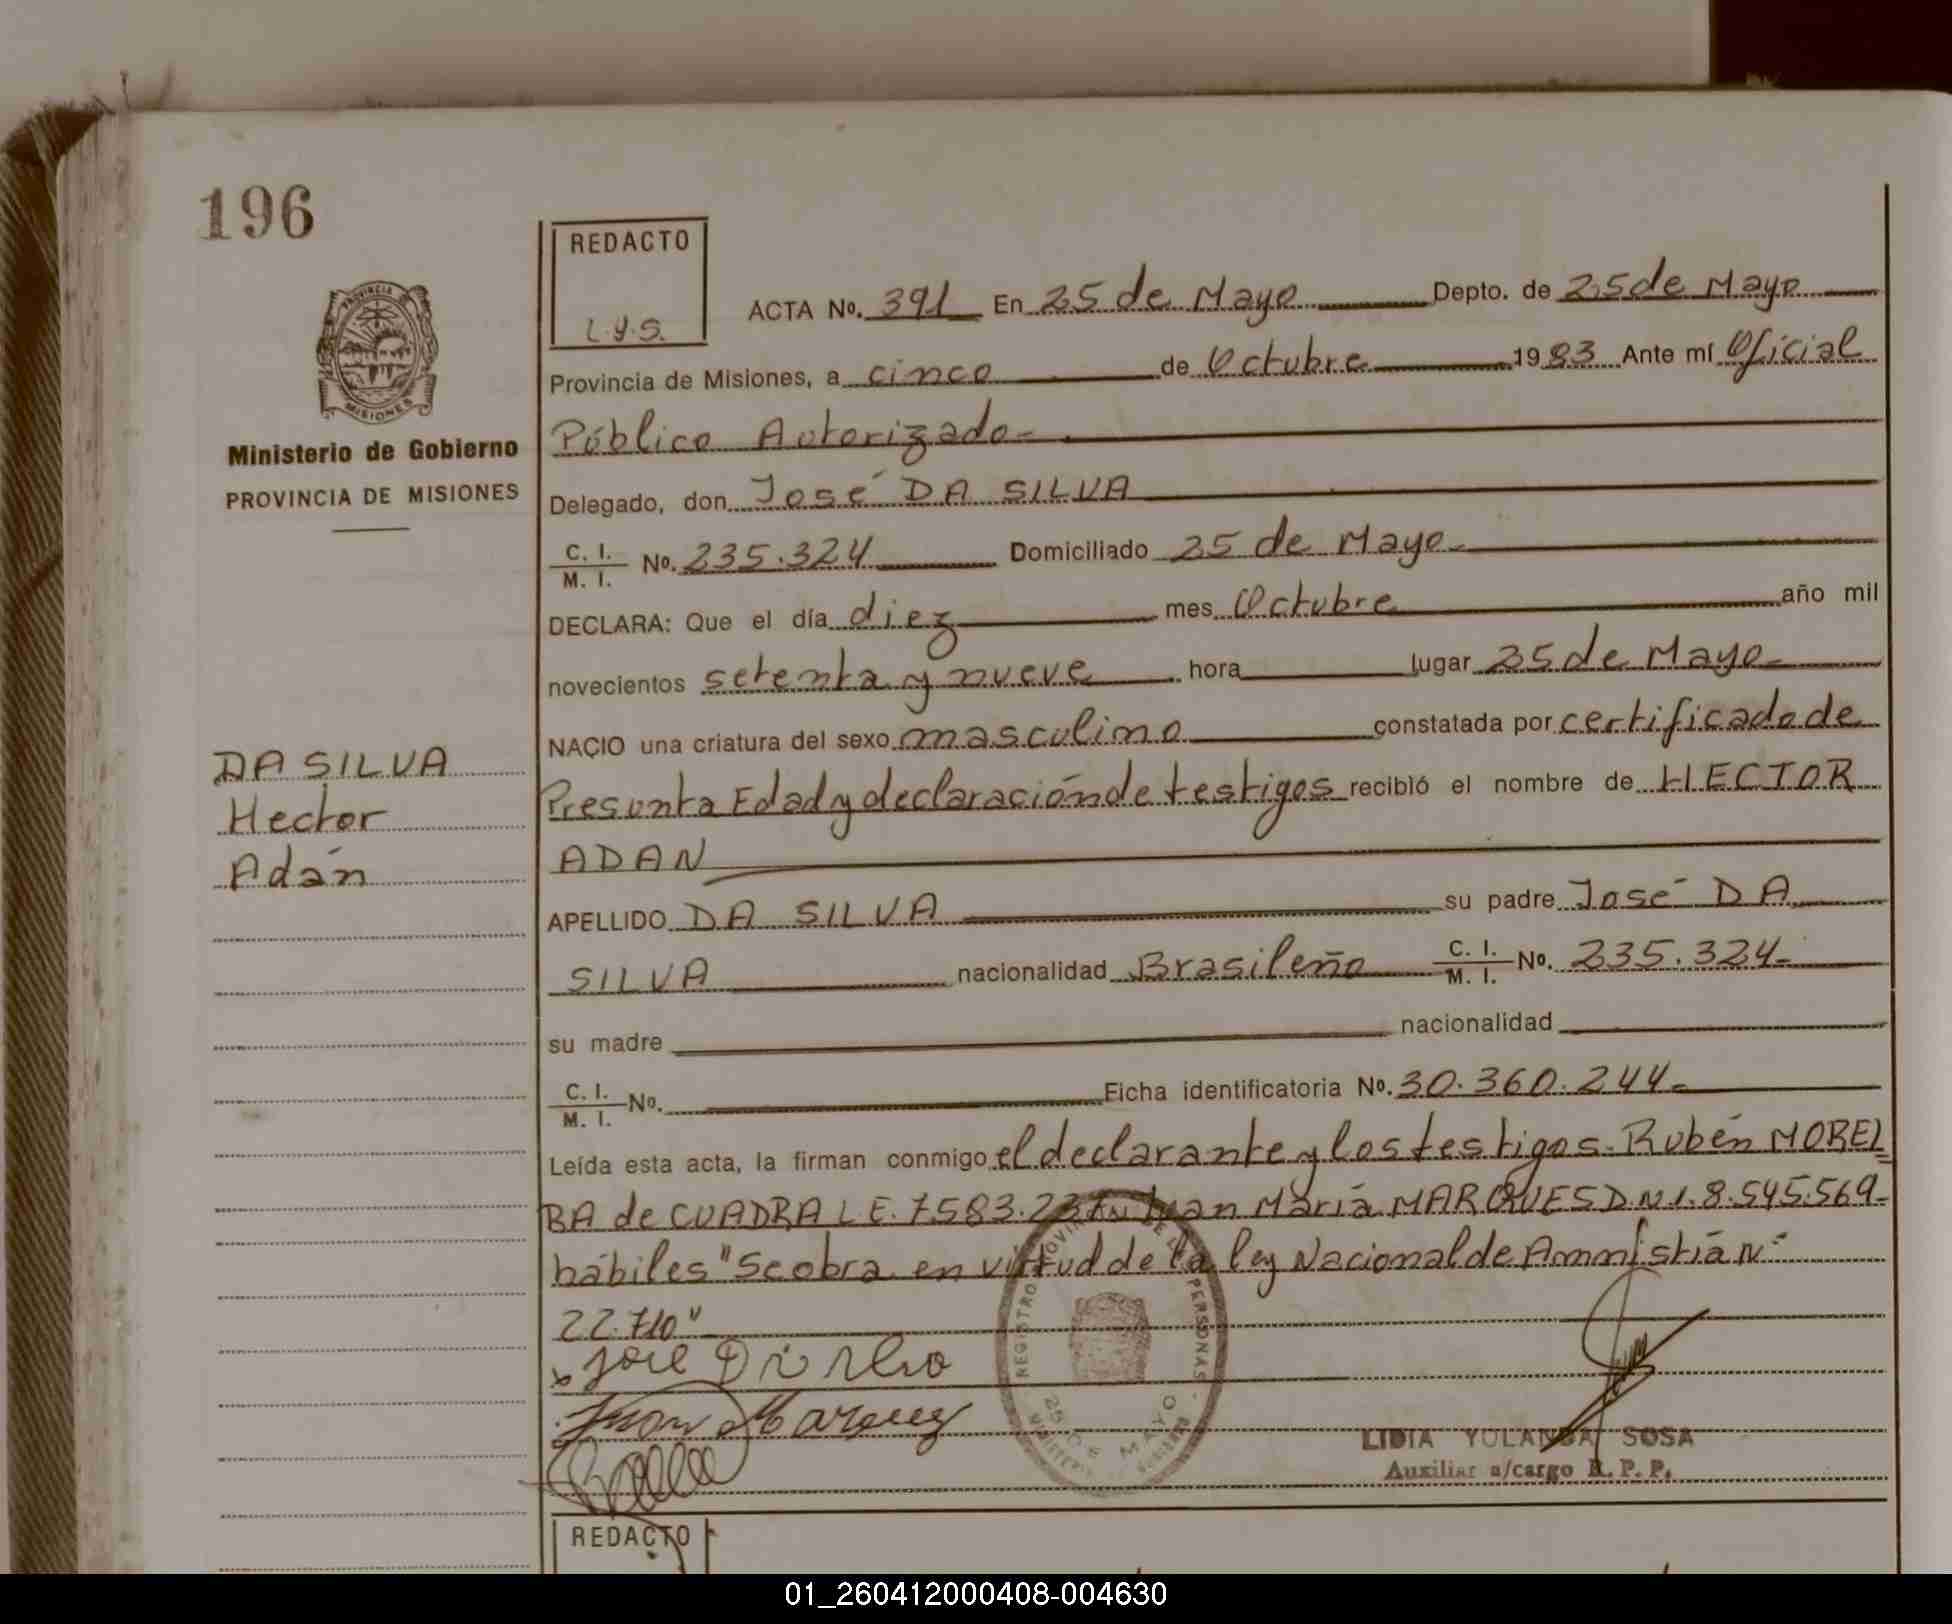 196
REDACTO
L.Y.S.
PROVINCIA DE
MISIONES
Ministerio de Gobierno
PROVINCIA DE MISIONES
DA SILVA
Hector
Adán
ACTA No. 391 En 25 de Mayo Depto. de 25 de Mayo
Provincia de Misiones, a cinco de Octubre 1983 Ante mí Oficial
Público Autorizado-
Delegado, don José DA SILVA
C. I. / M. I. No. 235.324 Domiciliado 25 de Mayo-
DECLARA: Que el día diez mes Octubre año mil
novecientos setenta y nueve hora lugar 25 de Mayo-
NACIO una criatura del sexo masculino constatada por certificado de
Presunta Edad y declaración de testigos recibió el nombre de HECTOR
ADAN
APELLIDO DA SILVA su padre José DA
SILVA nacionalidad Brasileño C. I. / M. I. No. 235.324-
su madre nacionalidad
C. I. / M. I. No. Ficha identificatoria No. 30.360.244-
Leída esta acta, la firman conmigo el declarante y los testigos- Rubén MOREL
BA de CUADRA L.E. 7.583.237 Juan María MARQUES D.N.I. 8.545.569-
hábiles "Se obra en virtud de la ley Nacional de Amnistía N°
22.710"
Juan Marquez
REGISTRO PROVINCIAL DE LAS PERSONAS
25 DE MAYO
LIDIA YOLANDA SOSA
Auxiliar a/cargo R. P. P.
REDACTO
01_260412000408-004630